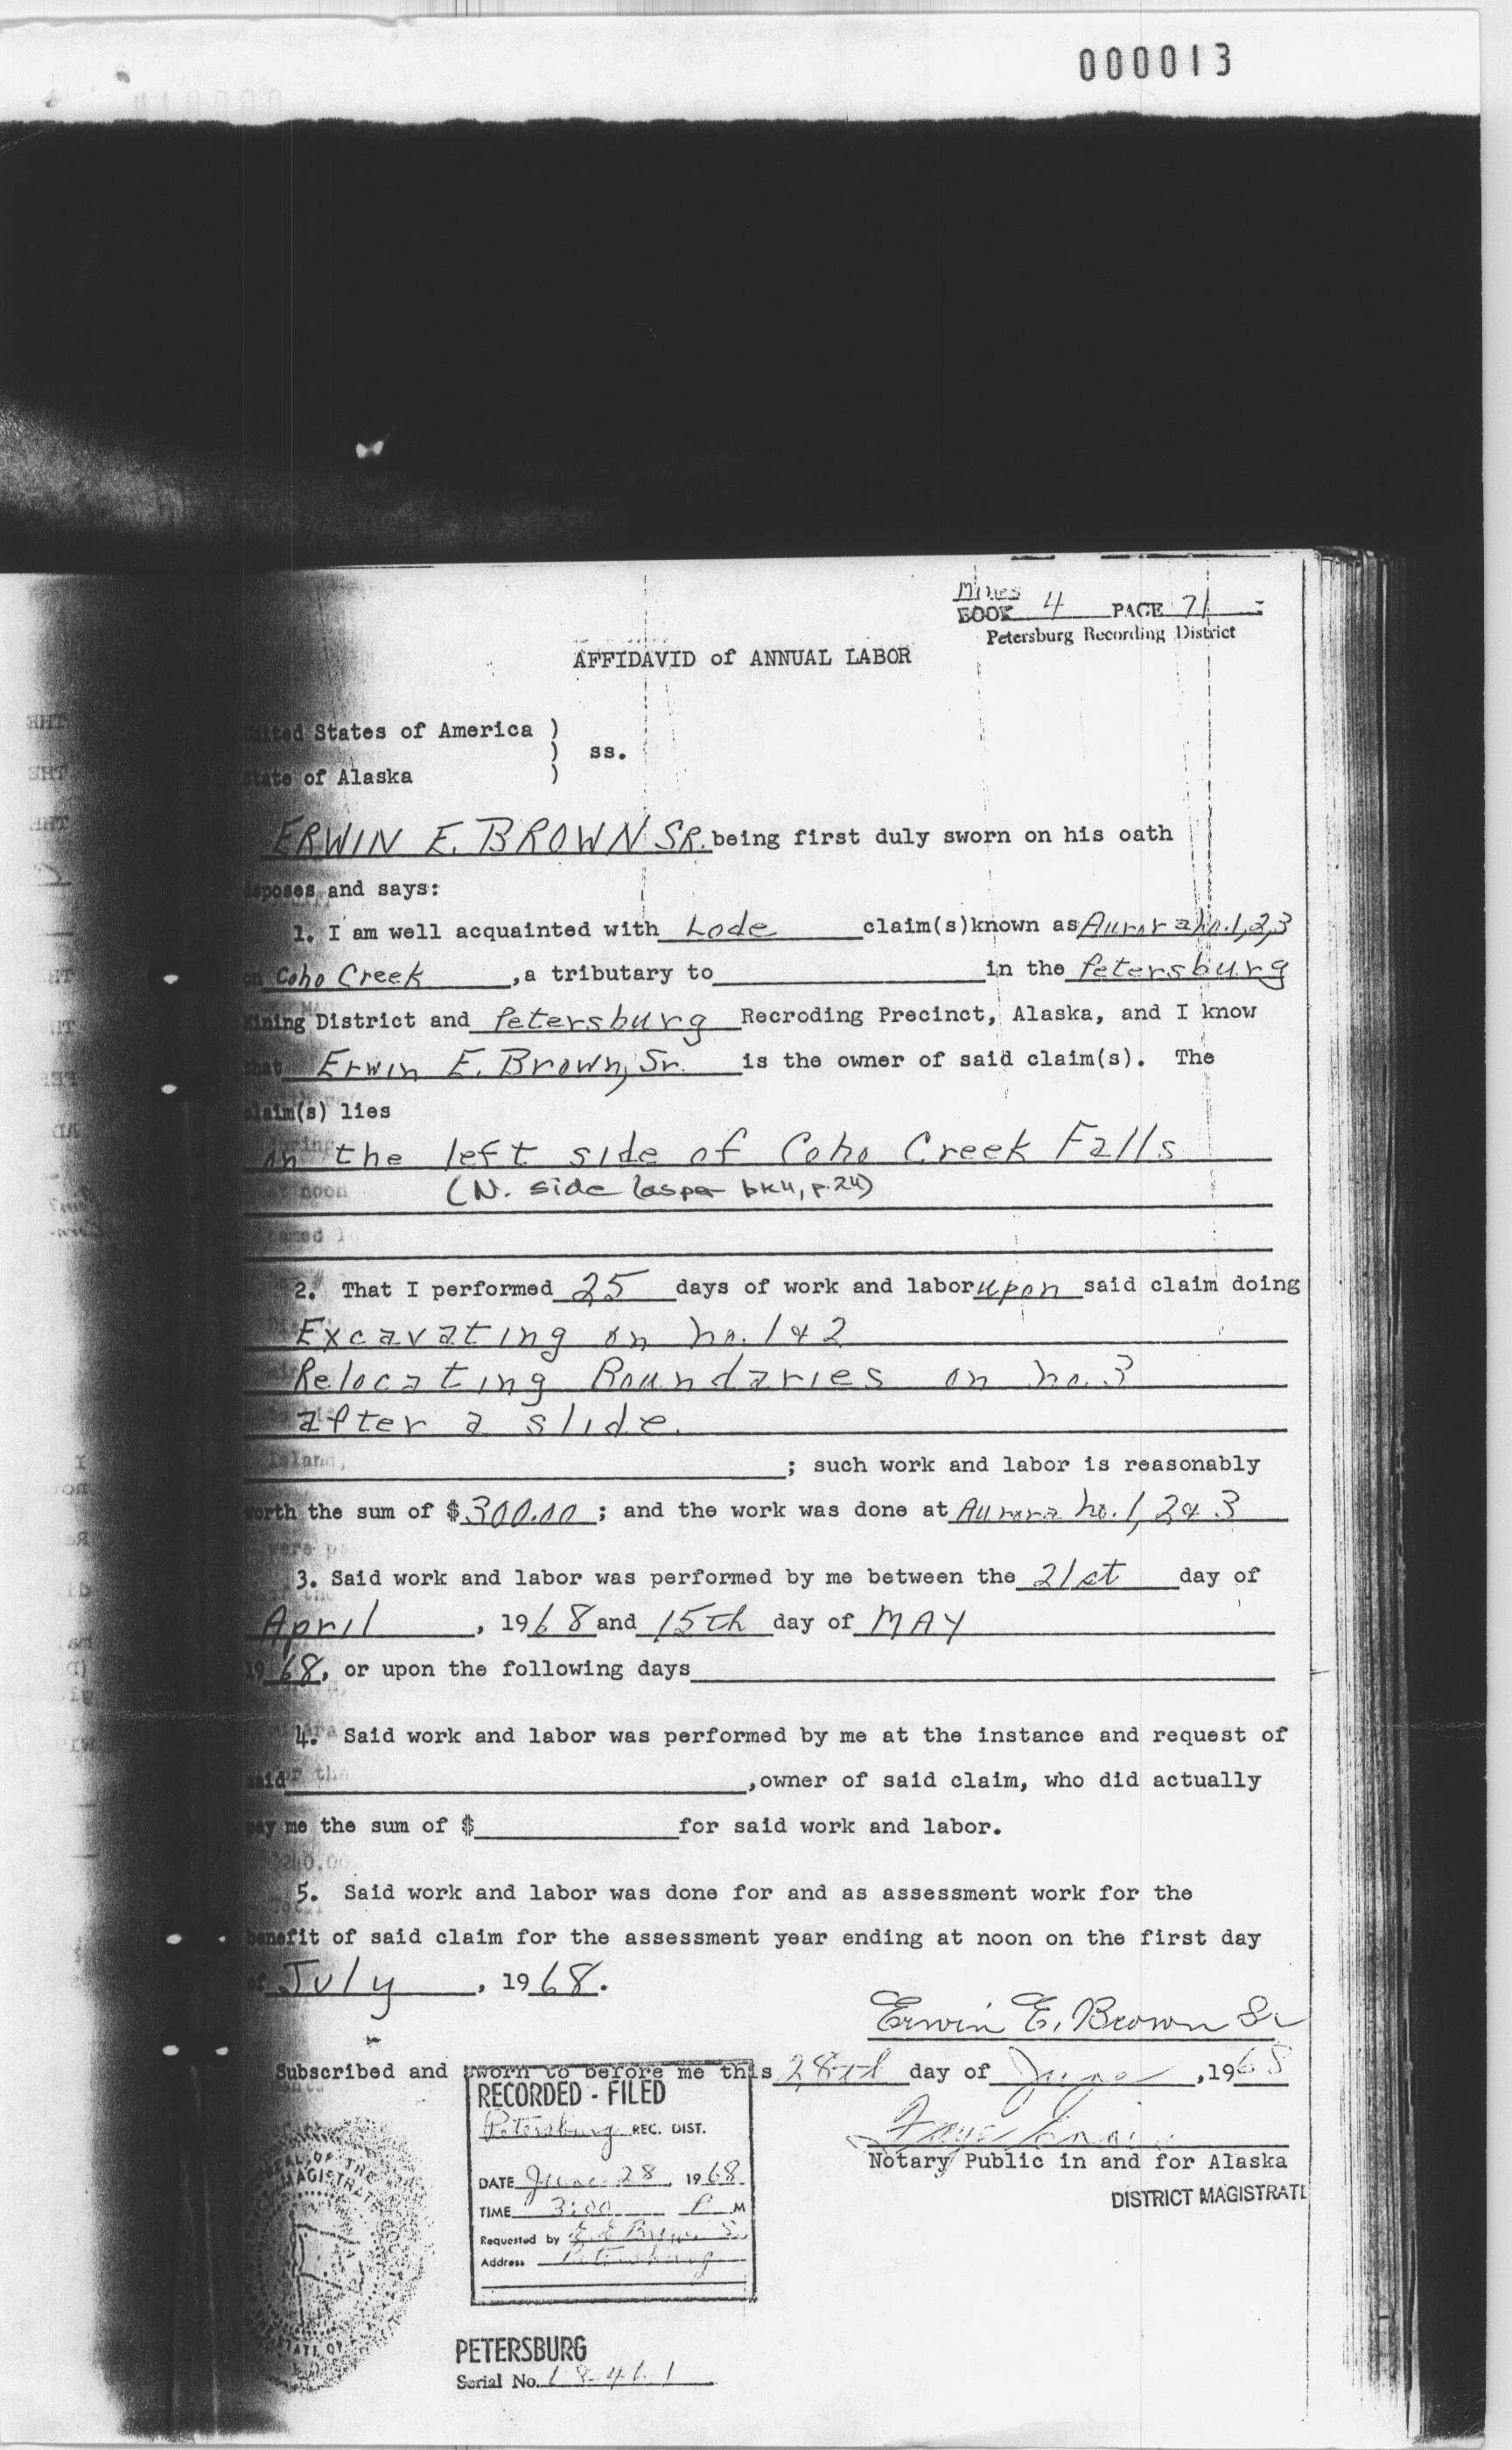 000013
Mines
BOOK 4 PAGE 71
Petersburg Recording District
AFFIDAVID of ANNUAL LABOR
United States of America )
) ss.
State of Alaska )
ERWIN E. BROWN SR. being first duly sworn on his oath
deposes and says:
1. I am well acquainted with Lode claim(s)known as Aurora no. 1,2,3
on Coho Creek ,a tributary to in the Petersburg
Mining District and Petersburg Recroding Precinct, Alaska, and I know
that Erwin E. Brown, Sr. is the owner of said claim(s). The
claim(s) lies
on the left side of Coho Creek Falls
(N. side (as per bk4, p.24)
2. That I performed 25 days of work and labor upon said claim doing
Excavating on no. 1 & 2
Relocating Boundaries on no. 3
after a slide.
; such work and labor is reasonably
worth the sum of $ 300.00 ; and the work was done at Aurora no. 1, 2 & 3
3. Said work and labor was performed by me between the 21st day of
April , 1968 and 15th day of MAY
1968, or upon the following days
4. Said work and labor was performed by me at the instance and request of
said ,owner of said claim, who did actually
pay me the sum of $ for said work and labor.
5. Said work and labor was done for and as assessment work for the
benefit of said claim for the assessment year ending at noon on the first day
of July , 1968.
Erwin E. Brown Sr
Subscribed and sworn to before me this 28th day of June ,1968
RECORDED - FILED
Petersburg REC. DIST.
DATE June 28 1968
TIME 3:00 P M
Requested by E. E. Brown Sr
Address Petersburg
Faye
Notary Public in and for Alaska
DISTRICT MAGISTRATE
PETERSBURG
Serial No.